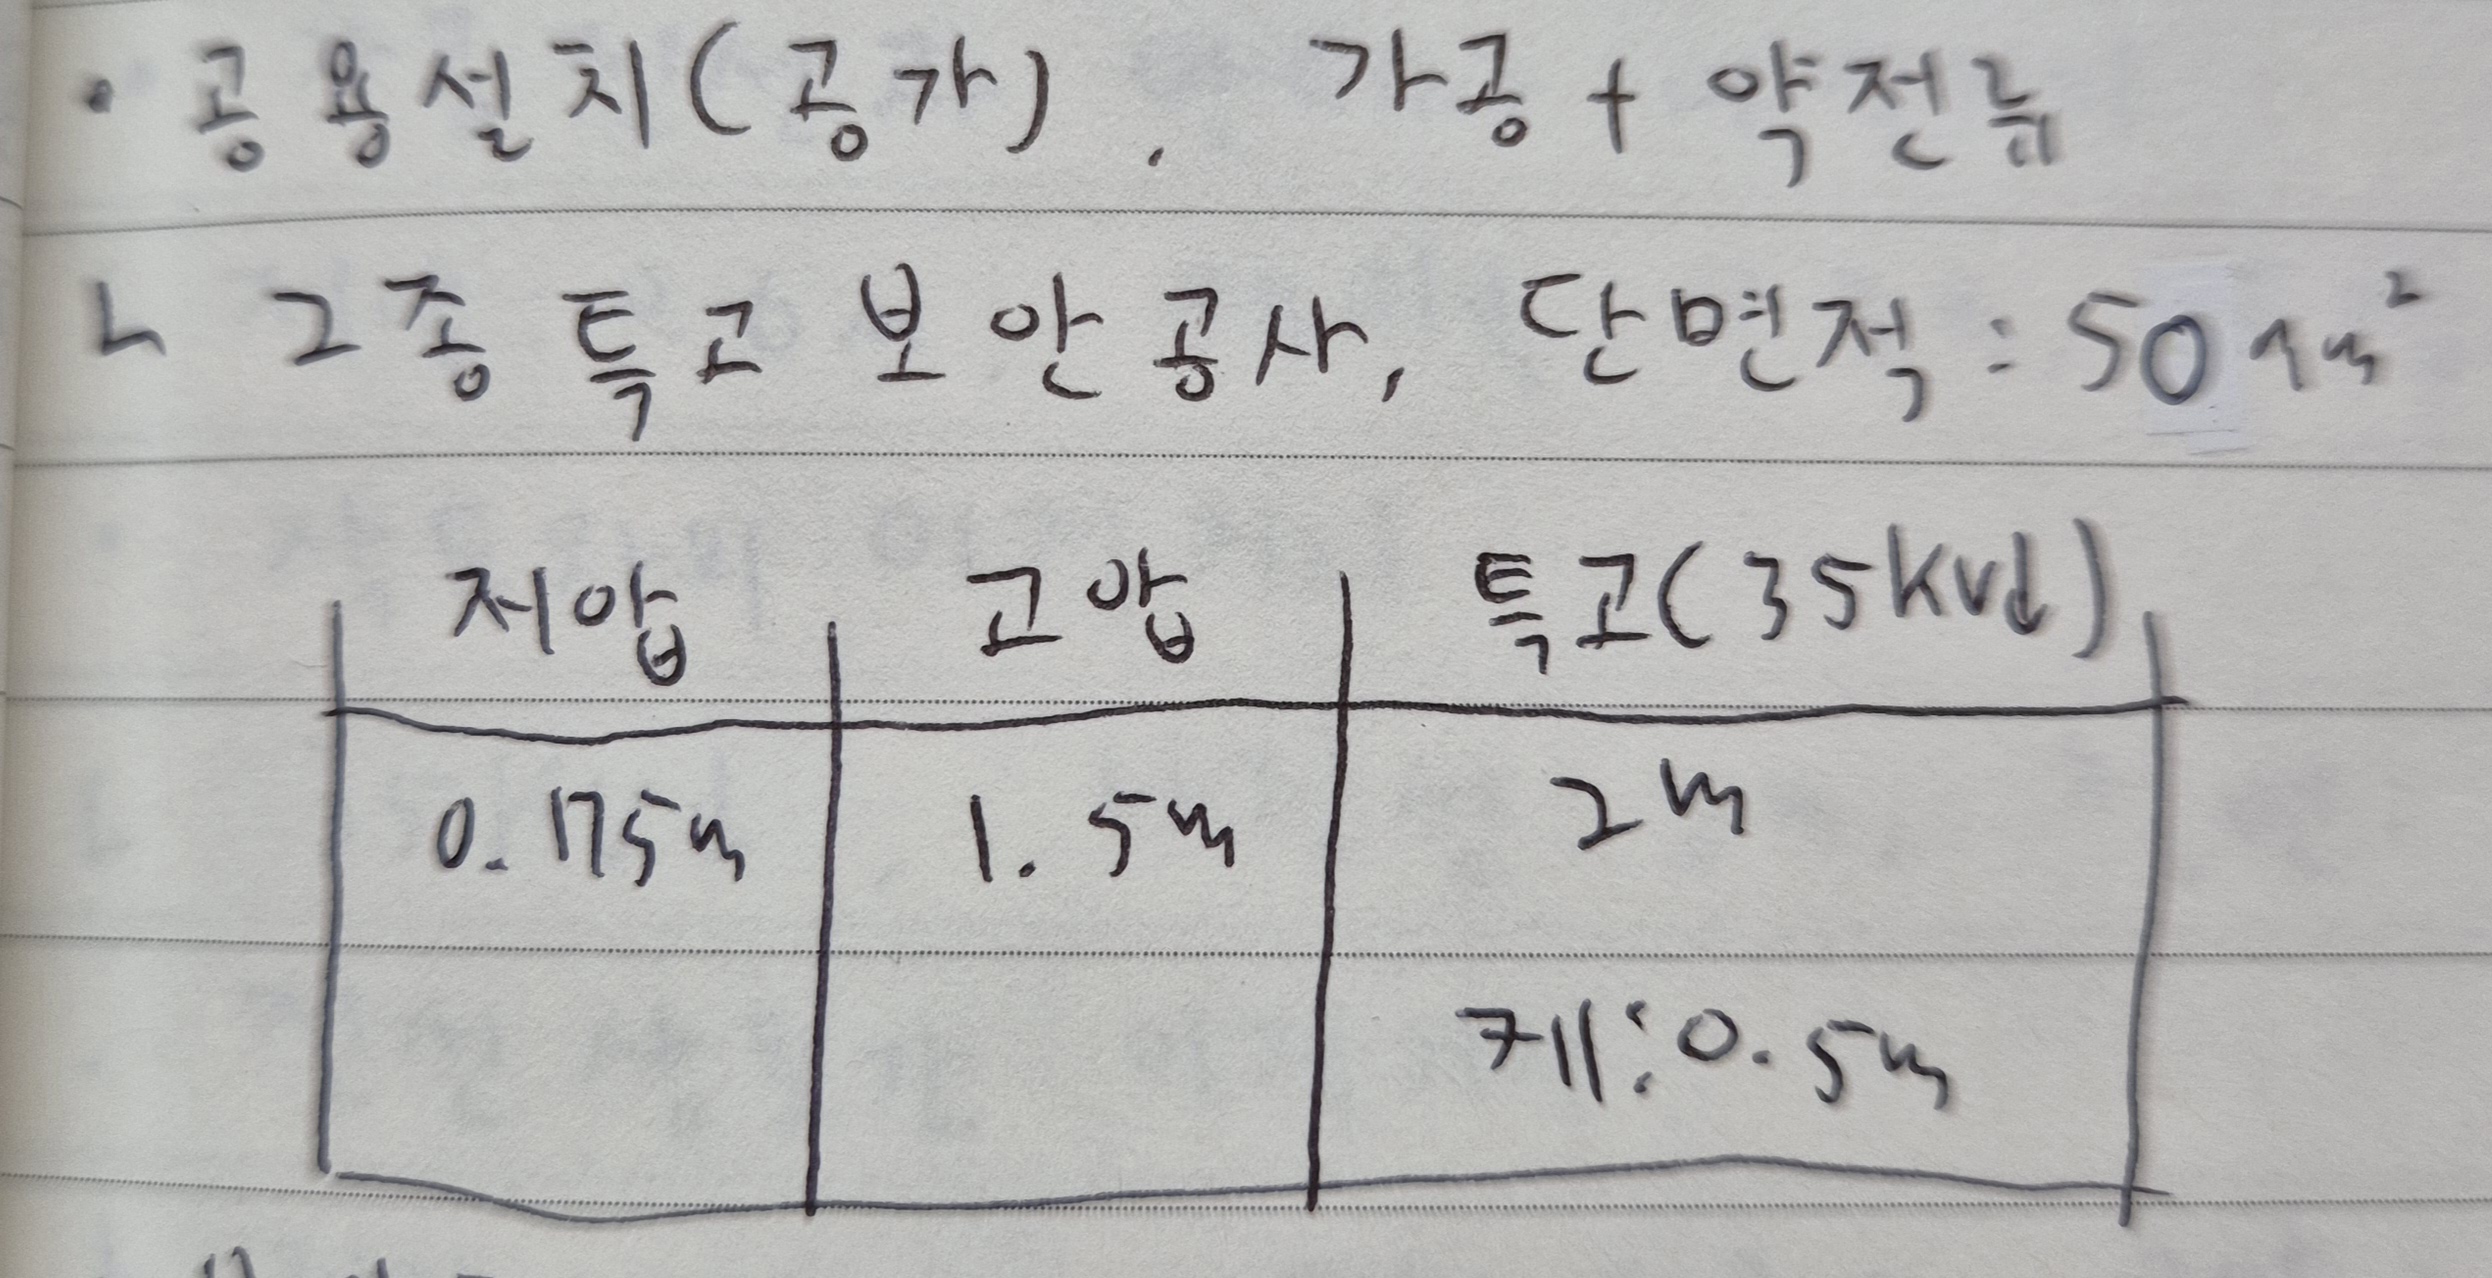 • 공용설치(공가), 가공 + 약전류
ㄴ 2종 특고 보안공사, 단면적 : 50mm²
저압 고압 특고(35kV↓)
0.175m 1.5m 2m
케:0.5m